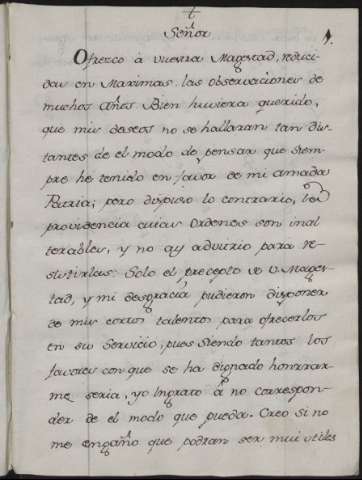 †
Señor
1.
Ofrezco à Vuestra Magestad, reduci-
das en Maximas, las observaciones de
muchos años. Bien huviera querido,
que mis deseos no se hallaran tan dis-
tantes de el modo de pensar que siem-
pre he tenido en favor de mi amada
Patria; pero dispuso lo contrario, la
providencia cuias Ordenes son inal
terables, y no ay advitrio para re-
sistirlas: Solo el precepto de V. Mages-
tad, y mi desgracia pudieron disponer
de mis cortos talentos para ofrecerlos
en su Servicio, pues siendo tantos los
favores con que se ha dignado honrrar-
me, seria, yo Ingrato à no correspon-
der de el modo que pueda. Creo si no
me engaño que podran ser mui utiles